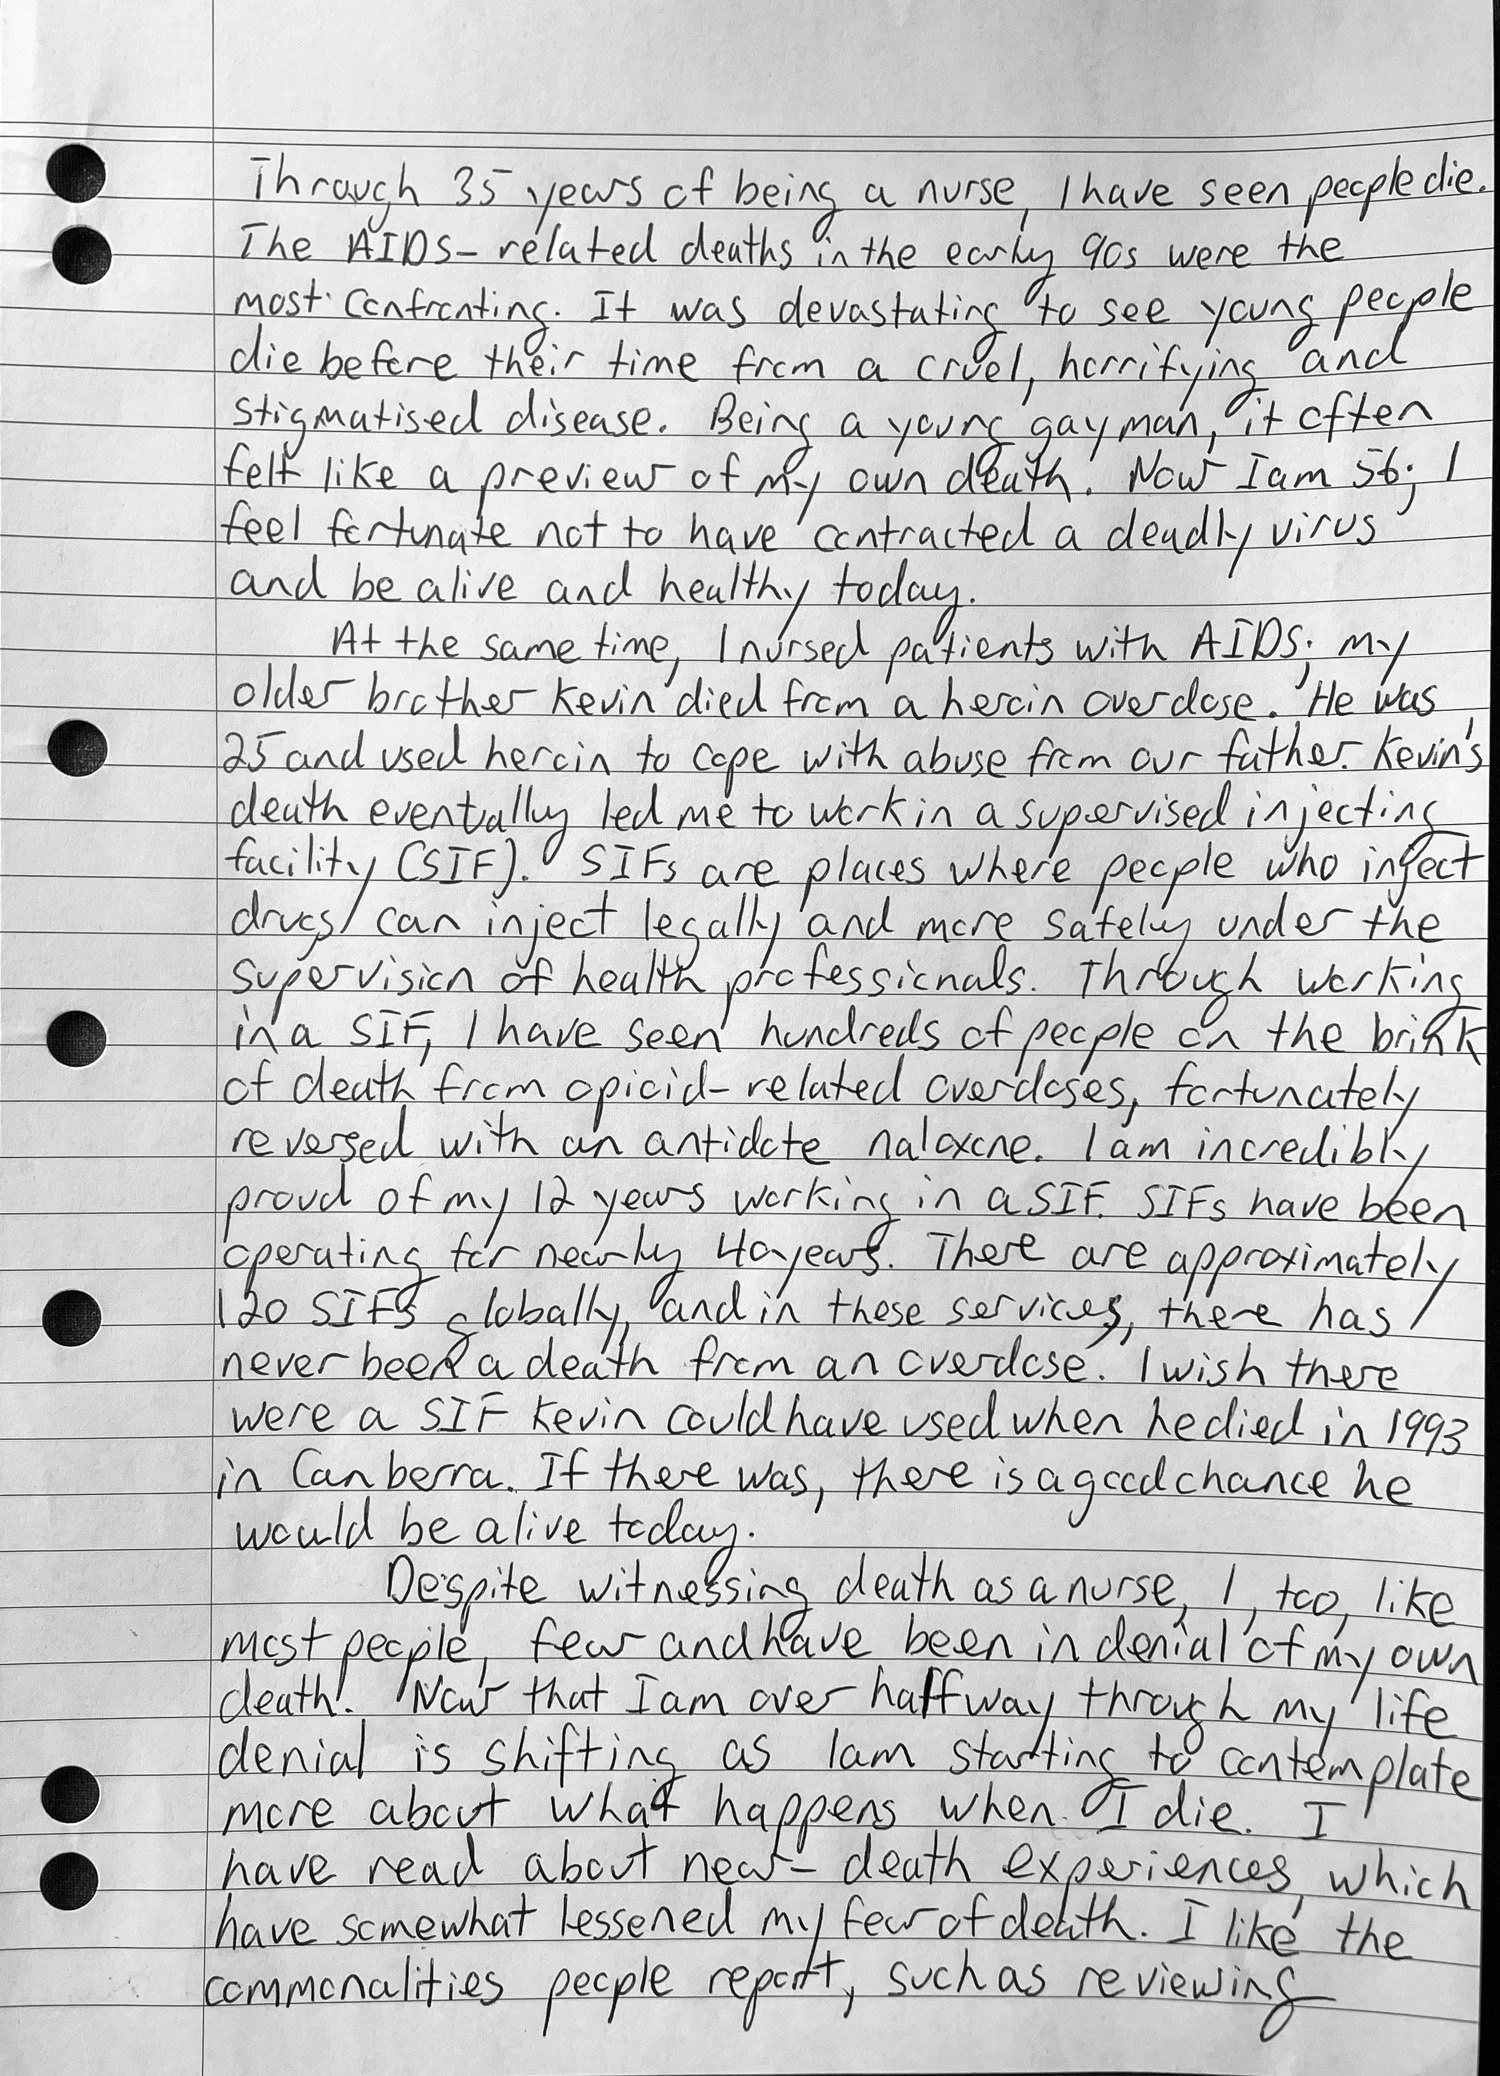 Through 35 years of being a nurse, I have seen people die.
The AIDS-related deaths in the early 90s were the
most confronting. It was devastating to see young people
die before their time from a cruel, horrifying and
stigmatised disease. Being a young gay man, it often
felt like a preview of my own death. Now I am 56; I
feel fortunate not to have contracted a deadly virus
and be alive and healthy today.
At the same time, I nursed patients with AIDS; my
older brother Kevin died from a heroin overdose. He was
25 and used heroin to cope with abuse from our father. Kevin's
death eventually led me to work in a supervised injecting
facility (SIF). SIFs are places where people who inject
drugs can inject legally and more safely under the
supervision of health professionals. Through working
in a SIF, I have seen hundreds of people on the brink
of death from opioid-related overdoses, fortunately
reversed with an antidote naloxone. I am incredibly
proud of my 12 years working in a SIF. SIFs have been
operating for nearly 40 years. There are approximately
120 SIFs globally, and in these services, there has
never been a death from an overdose. I wish there
were a SIF Kevin could have used when he died in 1993
in Canberra. If there was, there is a good chance he
would be alive today.
Despite witnessing death as a nurse, I, too, like
most people, fear and have been in denial of my own
death. Now that I am over halfway through my life
denial is shifting as I am starting to contemplate
more about what happens when I die. I
have read about near-death experiences, which
have somewhat lessened my fear of death. I like the
commonalities people report, such as reviewing